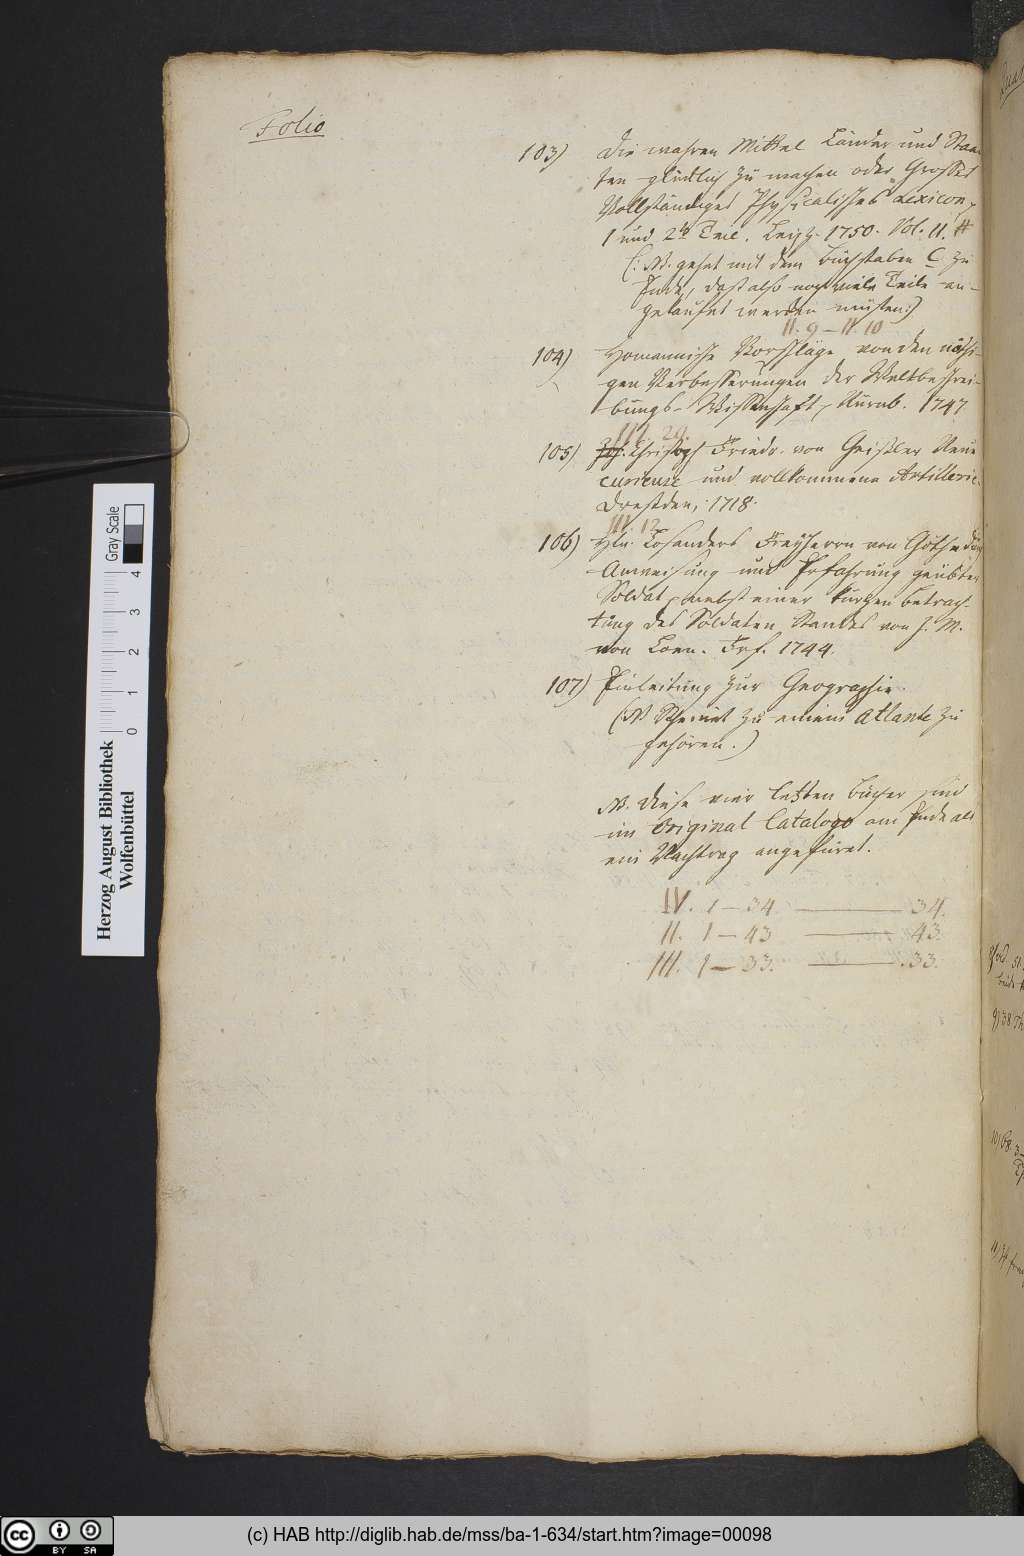 Folio
103) Die wahren Mittel Länder und Staa-
ten glücklich zu machen oder Grosses
Vollständiges Physicalisches Lexicon,
1 und 2te Teil. Leipz. 1750. Vol. II.
(: NB. gehet mit dem Buchstaben C. zu
Ende, daß also noch viele Teile an-
gekaufet werden müsten:)
II. 9 – II. 10
104) Homannische Vorschläge von den nöthi-
gen Verbesserungen der Weltbeschrei-
bungs-Wissenschaft, Nürnb. 1747.
III. 29.
105) Joh. Christoph Friedr. von Geißler Neue
curieuse und vollkommene Artillerie
Dresden, 1718.
III. 12
106) Hn. Eosanders Freyherrn von Göthe
Anweisung und Erfahrung geübter
Soldat, nebst einer kurzen Betrach-
tung des Soldaten Standes von J. M.
von Loen. Frf. 1744.
107) Einleitung zur Geographie.
(NB Scheinet zu einem Atlante zu
gehören.)
NB. Diese vier letzten Bücher sind
im Original Catalogo am Ende als
ein Nachtrag angefüret.
IV. 1 – 34. — 34.
II. 1 – 43 — 43.
III. 1 – 33. — 33.
Herzog August Bibliothek
Wolfenbüttel
Gray Scale
0 1 2 3 4
cc BY SA
(c) HAB http://diglib.hab.de/mss/ba-1-634/start.htm?image=00098